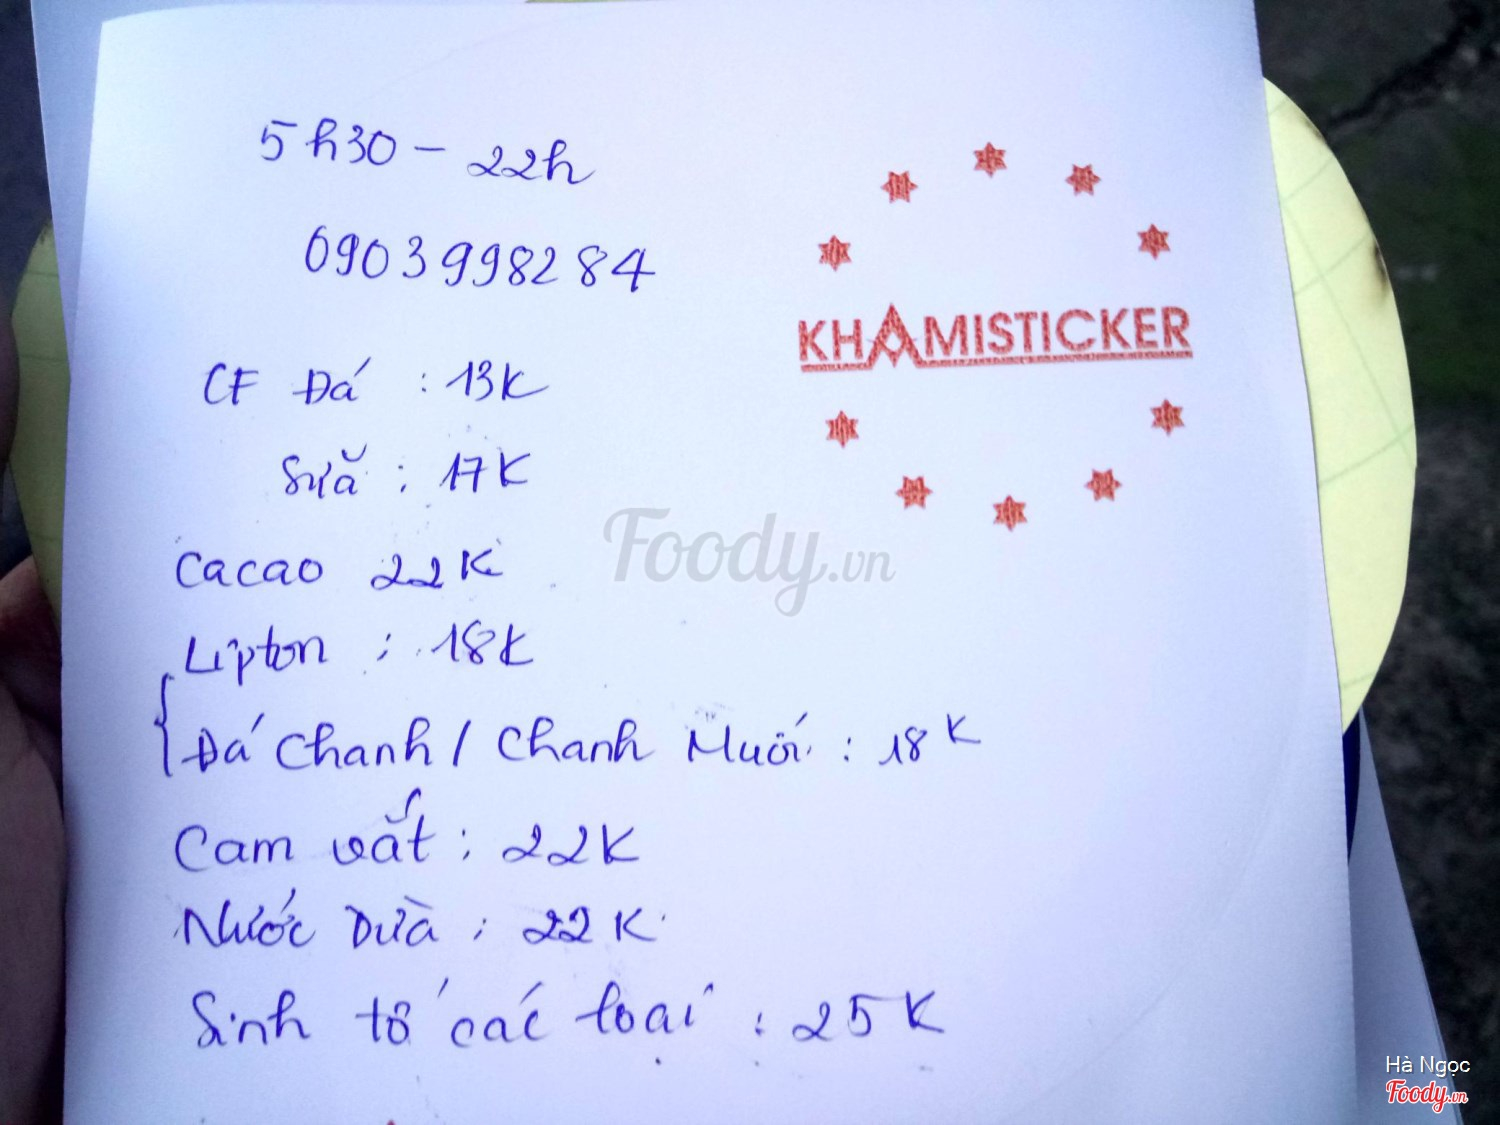 5h30 - 22h
0903998284
KHAMISTICKER
CF Đá : 13K
Sữa : 17K
Cacao 22K
Lipton : 18K
Đá Chanh / Chanh Muối : 18K
Cam vắt : 22K
Nước Dừa : 22K
Sinh tố các loại : 25K
Foody.vn
Hà Ngọc
Foody.vn